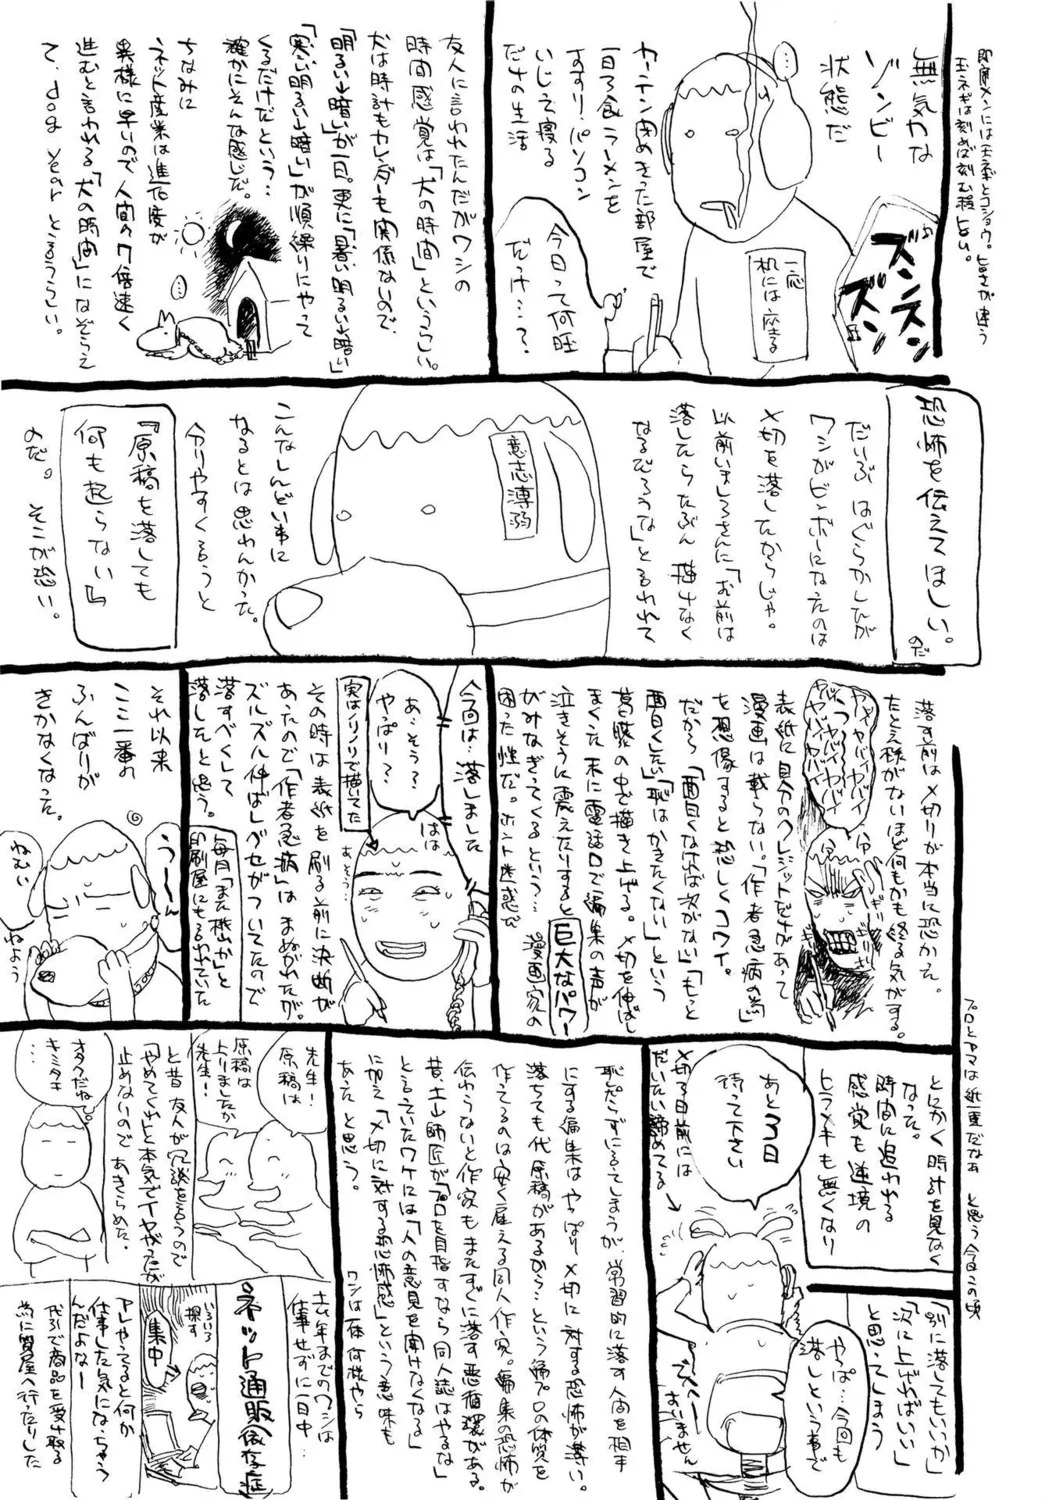 即席メンには玉ネギとコショウ。旨さが違う
玉ネギは刻めば刻む程旨い。
無気力な
ゾンビー
状態だ
…
ズンズン
ズンズン
一応
机には座る
カーテン閉めきった部屋で
一日一食ラーメンを
すすり・パソコン
いじって寝る
だけの生活
今日って何旺
だっけ…?
友人に言われたんだがワシの
時間感覚は「犬の時間」というらしい。
犬は時計もカレンダーも関係ないので、
「明るい→暗い」が一日。更に「暑い、明るい→暗い」
「寒い、明るい→暗い」が順繰りにやって
くるだけだという…
確かにそんな感じだ。
ちなみに
ネット産業は進化度が
異様に早いので人間の7倍速く
進むと言われる「犬の時間」になぞらえ
て、dog yearとゆうらしい。
…
恐怖を伝えてほしい。
のだ
だいぶはぐらかしたが
ワシがビンボーになったのは
〆切を落したからじゃ。
以前いましろさんに「お前は
落したらたぶん描けなく
なるだろうな」と言われて
意志薄弱
こんなしんどい事に
なるとは思わんかった。
分りやすくゆうと
『原稿を落しても
何も起らない』
のだ。そこが恐い。
落す前は〆切りが本当に恐かった。
たとえ様がないほど何もかも終る気がする。
表紙に自分のクレジットだけがあって
漫画は載らない。「作者急病の為」
を想像すると恐しくコワイ。
だから「面白くなければ次がない」「もっと
面白くしたい」「恥はかきたくない」という
葛藤の中で描き上げる。〆切を伸ばし
まくった末に電話口で編集の声が
泣きそうに震えたりすると巨大なパワー
がみなぎってくるという…漫画家の
困った性だ。ホント迷惑な
今回は…落しました
あ、そう?
やっぱり?
はは
実はノリノリで描いてた
その時は表紙を刷る前に決断が
あったので「作者急病」はまぬがれたが。
ズルズル伸ばしグセがついてたので
落すべくして
落したと思う。
毎月「また桃山か」と
印刷屋にも言われていた
それ以来
ここ一番の
ふんばりが
きかなくなった。
う〜ん
ねむい
ねよう
プロとアマは紙一重だなあ と思う今日この頃
とにかく時計を見なく
なった。
時間に追われる
感覚も逆境の
ヒラメキも無くなり
「別に落してもいいか」
「次に上げればいい」
と思ってしまう
あと3日
待って下さい
〆切3日前には
だいたい諦めてる
やっぱ…今回も
落しという事で
恥だらずにゆるってしまうが、常習的に落す人間を相手
にする編集はやっぱり〆切に対する恐怖が薄い。
落ちても代原稿があるから…という編プロの体質を
作ってるのは安く雇える同人作家。編集の恐怖が
伝わらないと作家もまたすぐに落す悪循環がある。
昔、土山師匠が「プロを目指すなら同人誌はやるな」
と言っていたワケには「人の意見を聞けなくなる」
に加え「〆切に対する恐怖感」という意味も
あったと思う。
ワシは一体何様やら
先生!
原稿は
上りましたか
先生!
原稿は
と昔、友人が冗談を言うので
「やめてくれ」と本気でイヤがったが
止めないので、あきらめた。
オタクだねて
キミタチ
…
去年までのワシは
仕事せずに一日中
ネット通販依存症
いろいろ
探す
集中
アレやってると何か
仕事した気になっちゃう
んだよなー
代引で商品を受け取る
為に質屋へ行ったりした